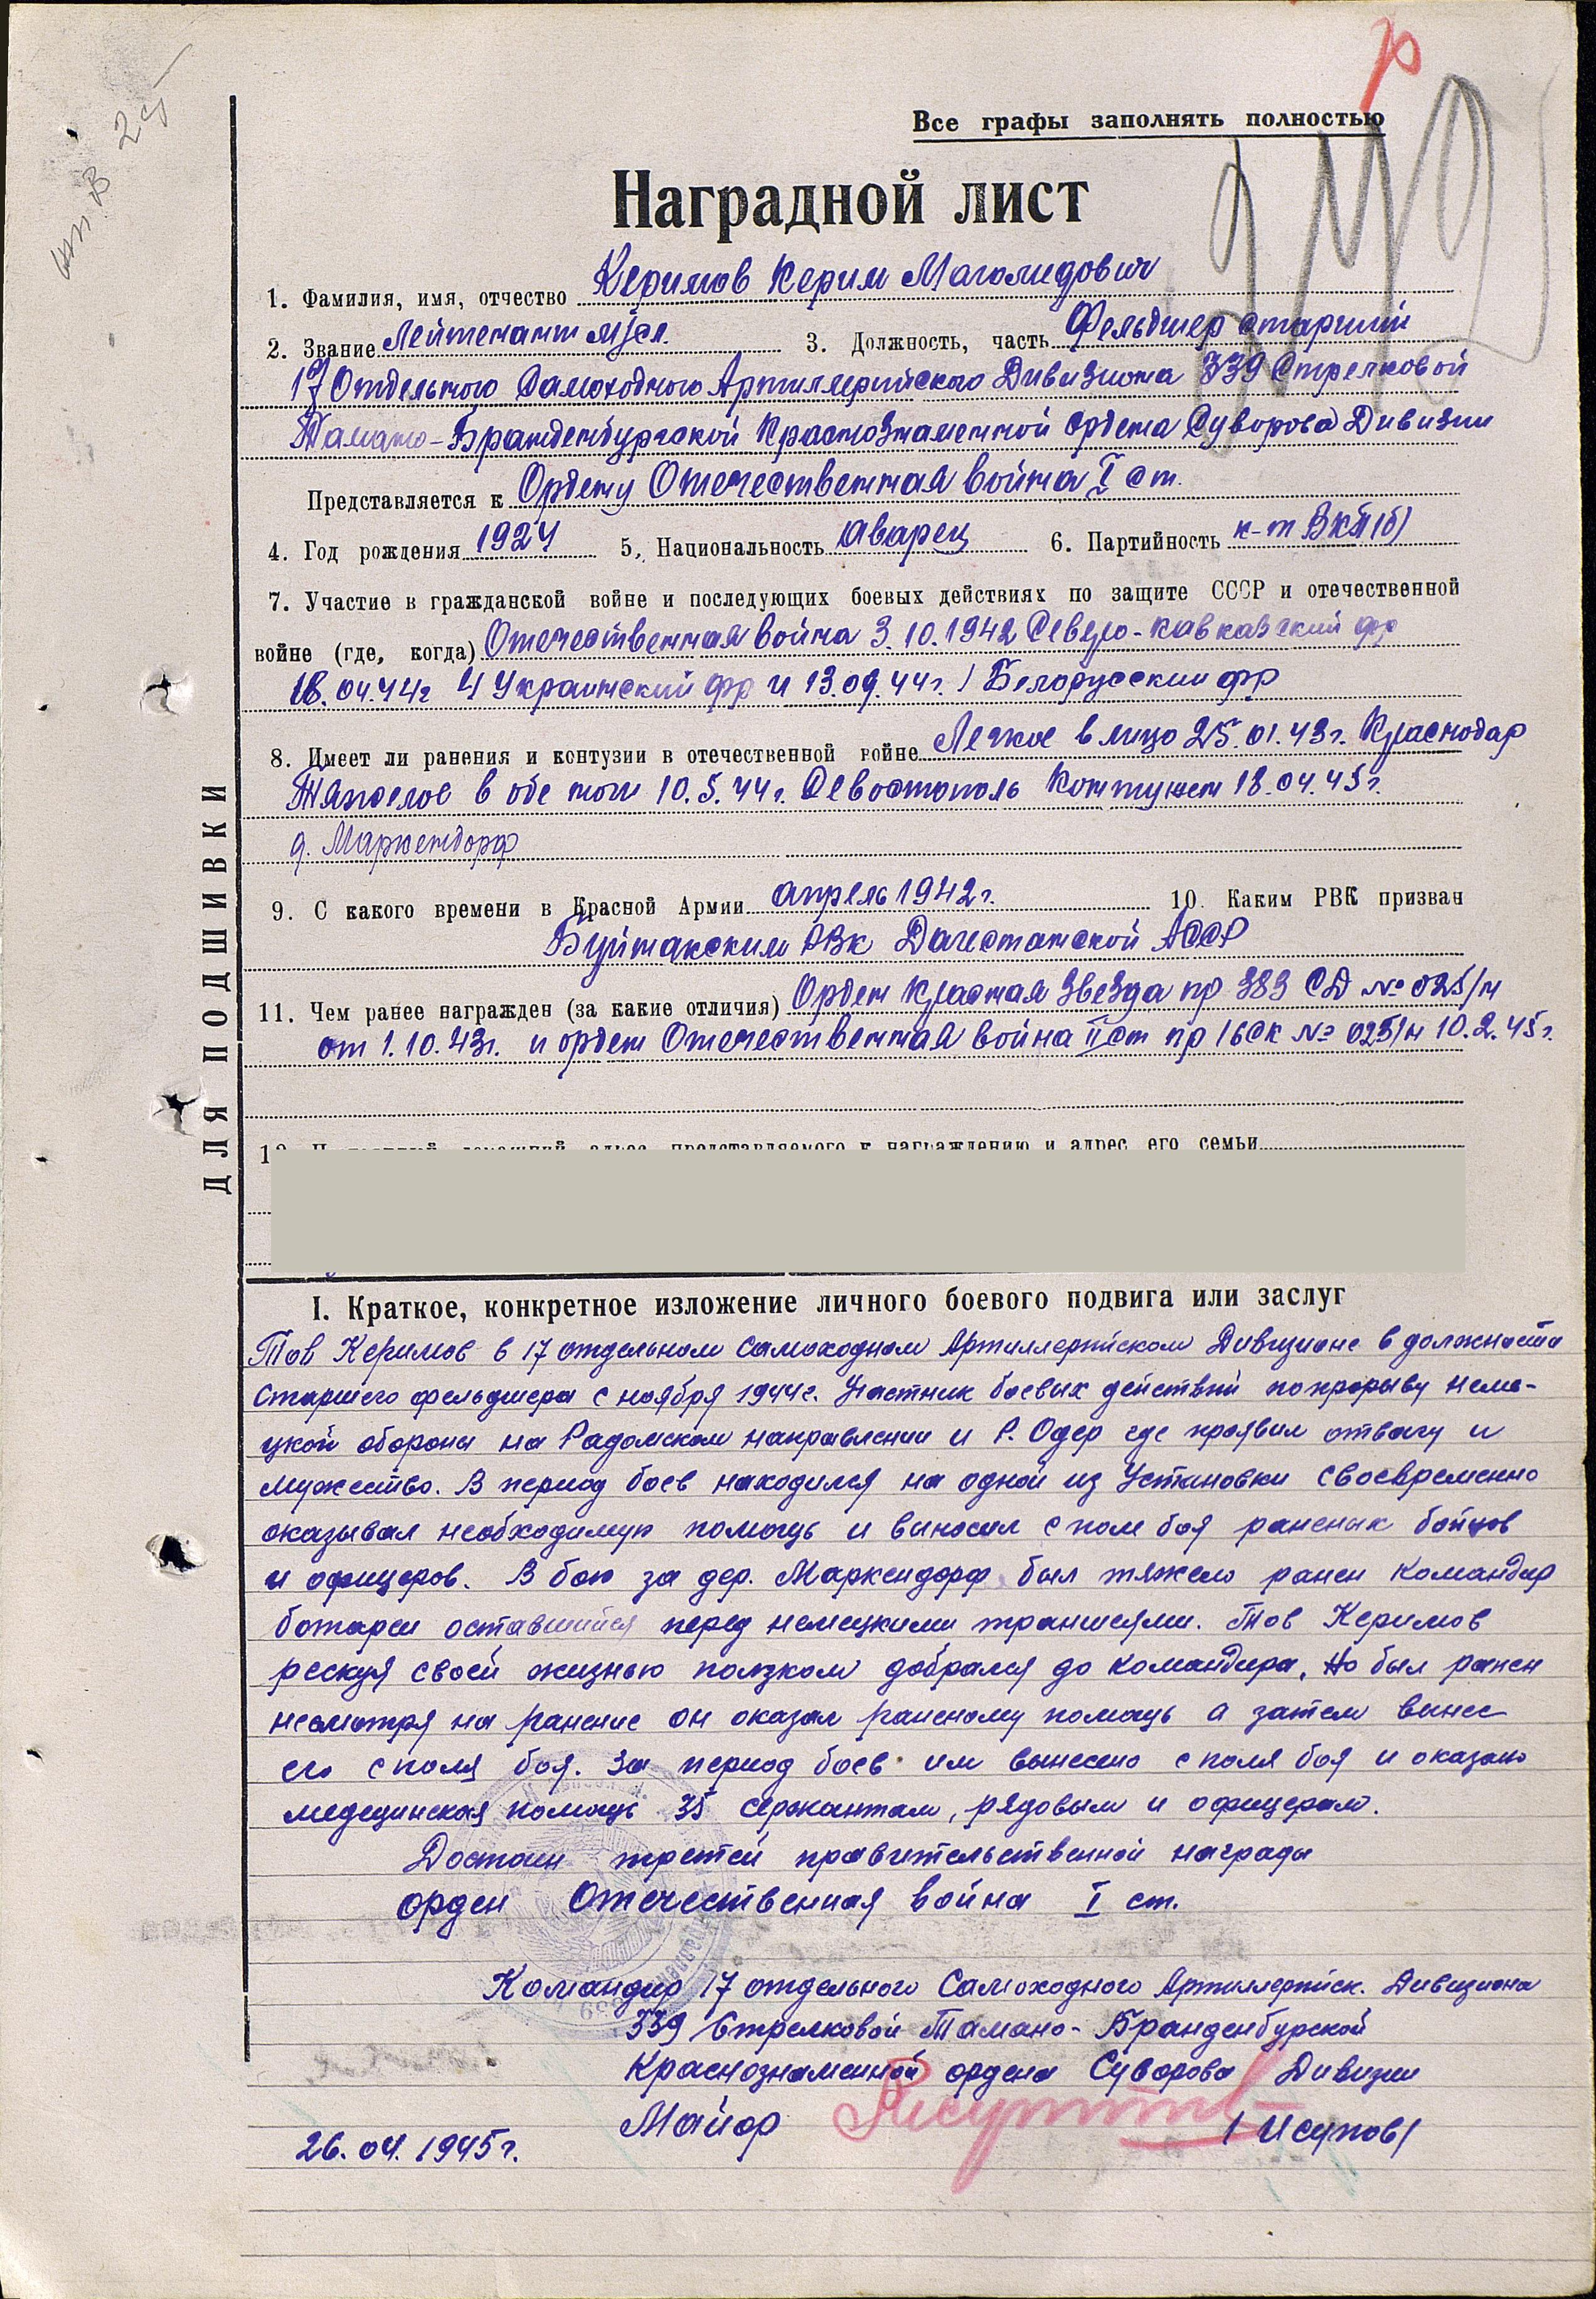 Все графы заполнять полностью
Наградной лист
1. Фамилия, имя, отчество Керимов Керим Магомедович
2. Звание Лейтенант м/сл. 3. Должность, часть Фельдшер старший
17 Отдельного Самоходного Артиллерийского Дивизиона 339 Стрелковой
Тамано-Бранденбургской Краснознаменной ордена Суворова Дивизии
Представляется к Ордену Отечественная война I ст.
4. Год рождения 1924 5. Национальность Аварец 6. Партийность к-т ВКП(б)
7. Участие в гражданской войне и последующих боевых действиях по защите СССР и отечественной
войне (где, когда) Отечественная война 3.10.1942 Северо-кавказский фр
18.04.44г 4 Украинский фр и 13.09.44г. 1 Белорусский фр
8. Имеет ли ранения и контузии в отечественной войне Легкое в лицо 25.01.43г. Краснодар
Тяжелое в обе ноги 10.5.44г. Севостополь Контужен 18.04.45г.
д. Маркендорф
9. С какого времени в Красной Армии апрель 1942г. 10. Каким РВК призван
Буйнакским РВК Дагестанской АССР
11. Чем ранее награжден (за какие отличия) Орден Красная Звезда пр 383 СД № 025/н
от 1.10.43г. и орден Отечественная война II ст пр 16СК № 025/н 10.2.45г.
представляемого к награждению и адрес его семьи
ДЛЯ ПОДШИВКИ
I. Краткое, конкретное изложение личного боевого подвига или заслуг
Тов Керимов в 17 отдельном Самоходном Артиллерийском Дивизионе в должности
Старшего фельдшера с ноября 1944г. Участник боевых действий по прорыву неме-
цкой обороны на Радомском направлении и Р. Одер где проявил отвагу и
мужество. В период боев находился на одной из Установки своевременно
оказывал необходимую помощь и выносил с поле боя раненых бойцов
и офицеров. В бою за дер. Маркендорф был тяжело ранен командир
ботареи оставшийся перед немецкими траншеями. Тов Керимов
рескуя своей жизнью ползком добрался до командира, но был ранен
несмотря на ранение он оказал раненому помощь а затем вынес
его с поля боя. За период боев им вынесено с поля боя и оказано
медецинская помощь 35 сержантам, рядовым и офицерам.
Достоин третей правительственной награды
орден Отечественная война I ст.
Командир 17 отдельного Самоходного Артиллерийск. Дивизиона
339 Стрелковой Тамано-Бранденбурской
Краснознаменной ордена Суворова Дивизии
Майор /Исупов/
26.04.1945г.